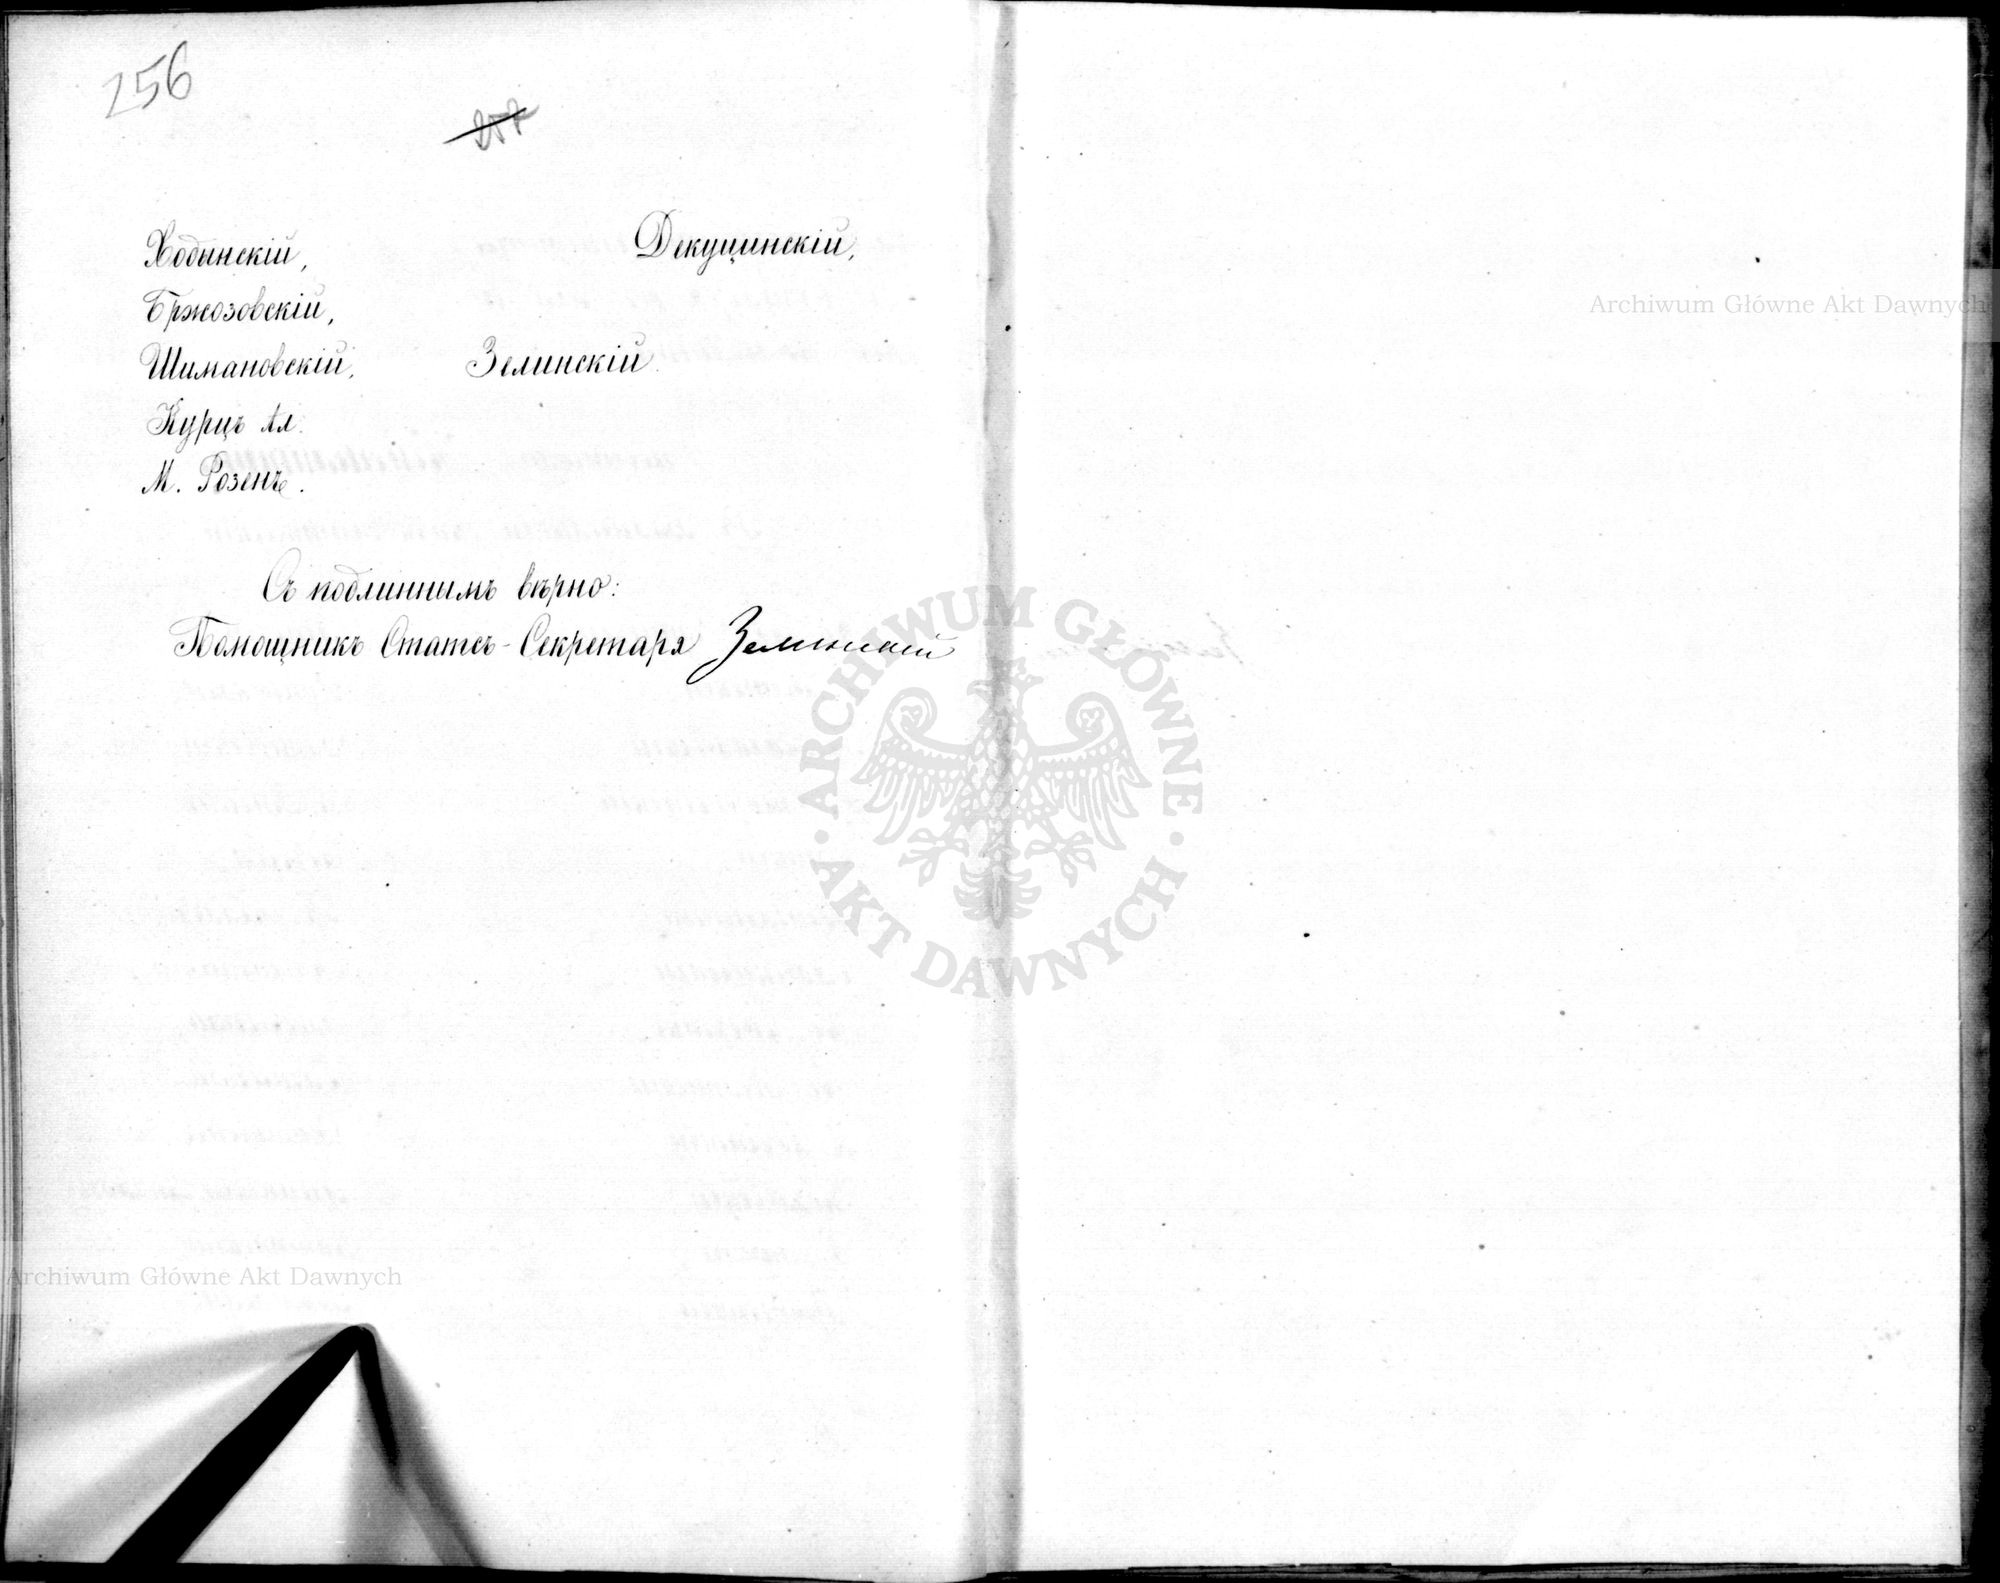 256
257
Ходынскій, Декуцинскій,
Бржозовскій,
Шимановскій, Зелинскій.
Курцъ Ал.
М. Розенъ.
Съ подлиннымъ вѣрно:
Помощникъ Статсъ-Секретаря Зелинскій
Archiwum Główne Akt Dawnych
ARCHIWUM GŁÓWNE AKT DAWNYCH
Archiwum Główne Akt Dawnych